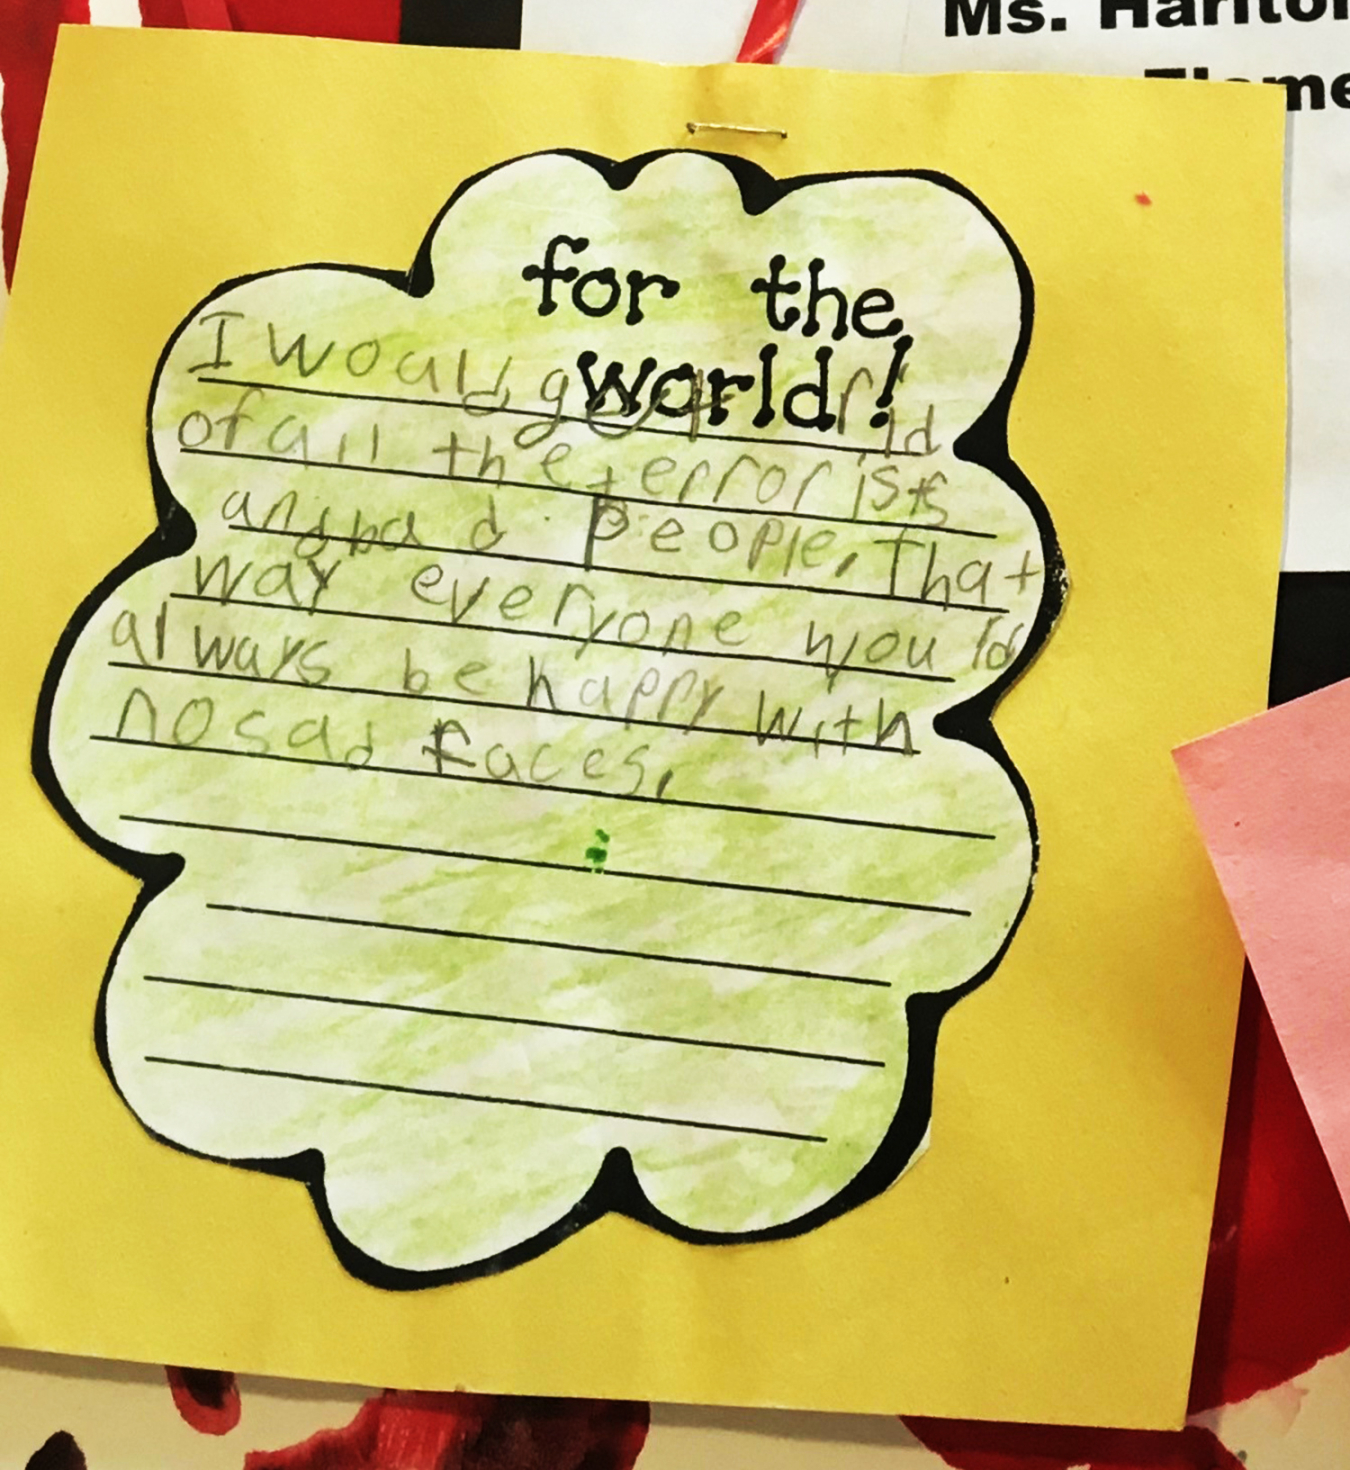 Ms.
for the
world!
I would get rid
of all the terrorists
and bad people. That
way everyone would
always be happy with
no sad faces.